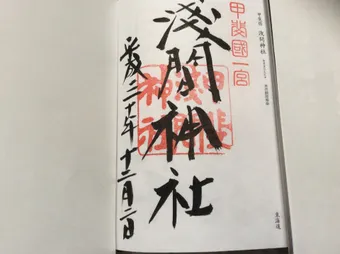 甲斐国 浅間神社
東海道
甲斐國一宮
淺間神社
平成三十年十二月二日